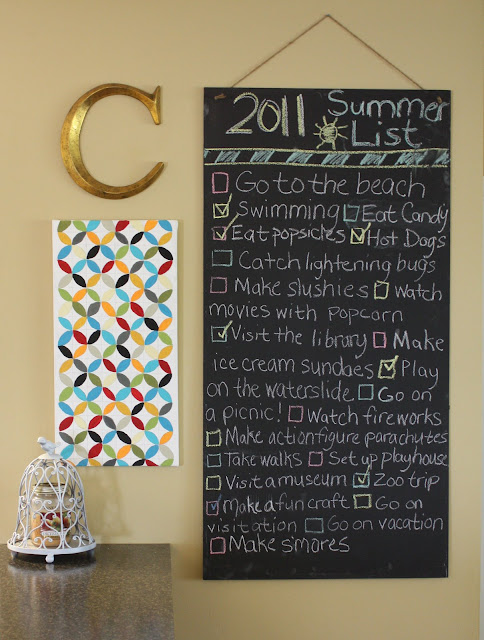 C
2011 Summer
List
Go to the beach
Swimming Eat Candy
Eat popsicles Hot Dogs
Catch lightening bugs
Make Slushies Watch
movies with popcorn
Visit the library Make
ice cream sundaes Play
on the waterslide Go on
a picnic! Watch fireworks
Make action figure parachutes
Take walks Set up playhouse
Visit a museum Zoo trip
Make a fun craft Go on
visitation Go on vacation
Make s'mores